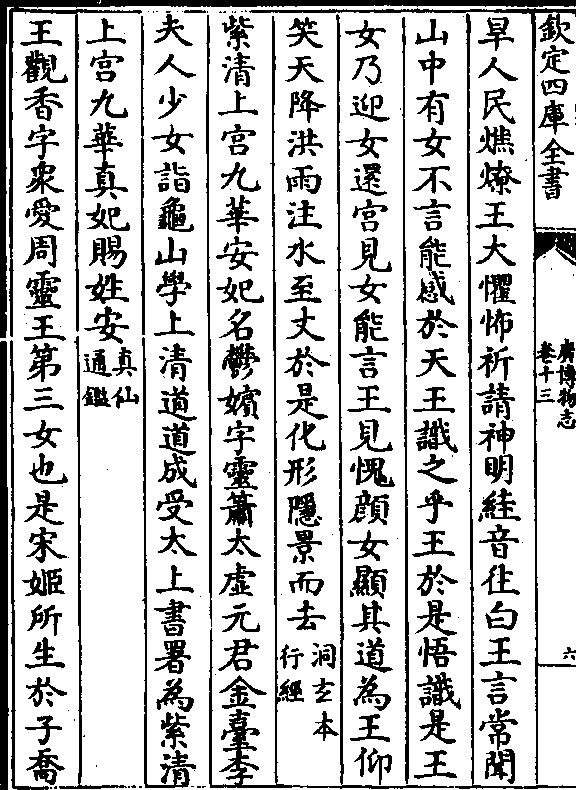 欽定四庫全書
廣博物志
卷十三
六
旱人民燋燎王大懼怖祈請神明絓音往白王言常聞
山中有女不言能感於天王識之乎王於是悟識是王
女乃迎女還宮見女能言王見愧顔女顯其道為王仰
笑天降洪雨注水至丈於是化形隱景而去洞玄本行經
紫清上宮九華安妃名鬱嬪字靈簫太虛元君金臺李
夫人少女詣龜山學上清道道成受太上書署為紫清
上宮九華真妃賜姓安真仙通鑑
王觀香字衆愛周靈王第三女也是宋姬所生於子喬